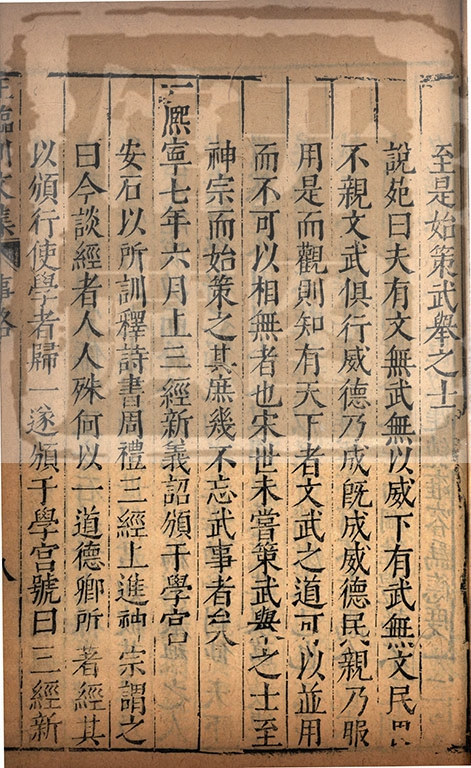 至是始策武舉之士
說苑曰夫有文無武無以威下有武無文民畏
不親文武俱行威德乃成旣成威德民親乃服
用是而觀則知有天下者文武之道可以並用
而不可以相無者也宋世未嘗策武舉之士至
神宗而始策之其庶幾不忘武事者矣
熈寧七年六月上三經新義詔頒于學官
安石以所訓釋詩書周禮三經上進神宗謂之
曰今談經者人人殊何以一道德卿所著經其
以頒行使學者歸一遂頒于學官號曰三經新
王臨川文集 事略 八